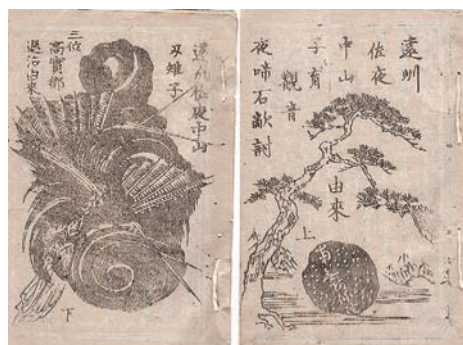 遠州
佐夜
中山
子育
觀音
夜啼石敵討
由來
上
遠州佐夜中山
刃雉子
三位
高實卿
退治由來
下